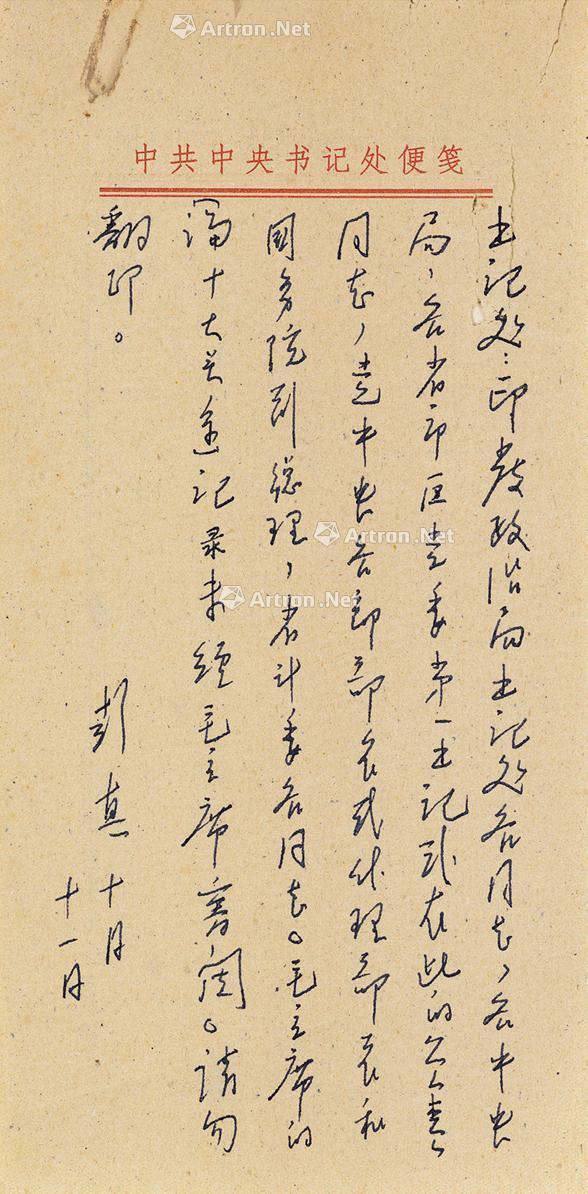 Artron.Net
中共中央书记处便笺
书记处：印发政治局书记处各同志，各中央
局，各省市区党委第一书记或在此的负责
同志，党中央各部部长或代理部长和
国务院副总理，省计委各同志。毛主席的
十大关系记录未经毛主席审阅。请勿
翻印。
彭真 十月
十一月
Artron.Net
Artron.Net